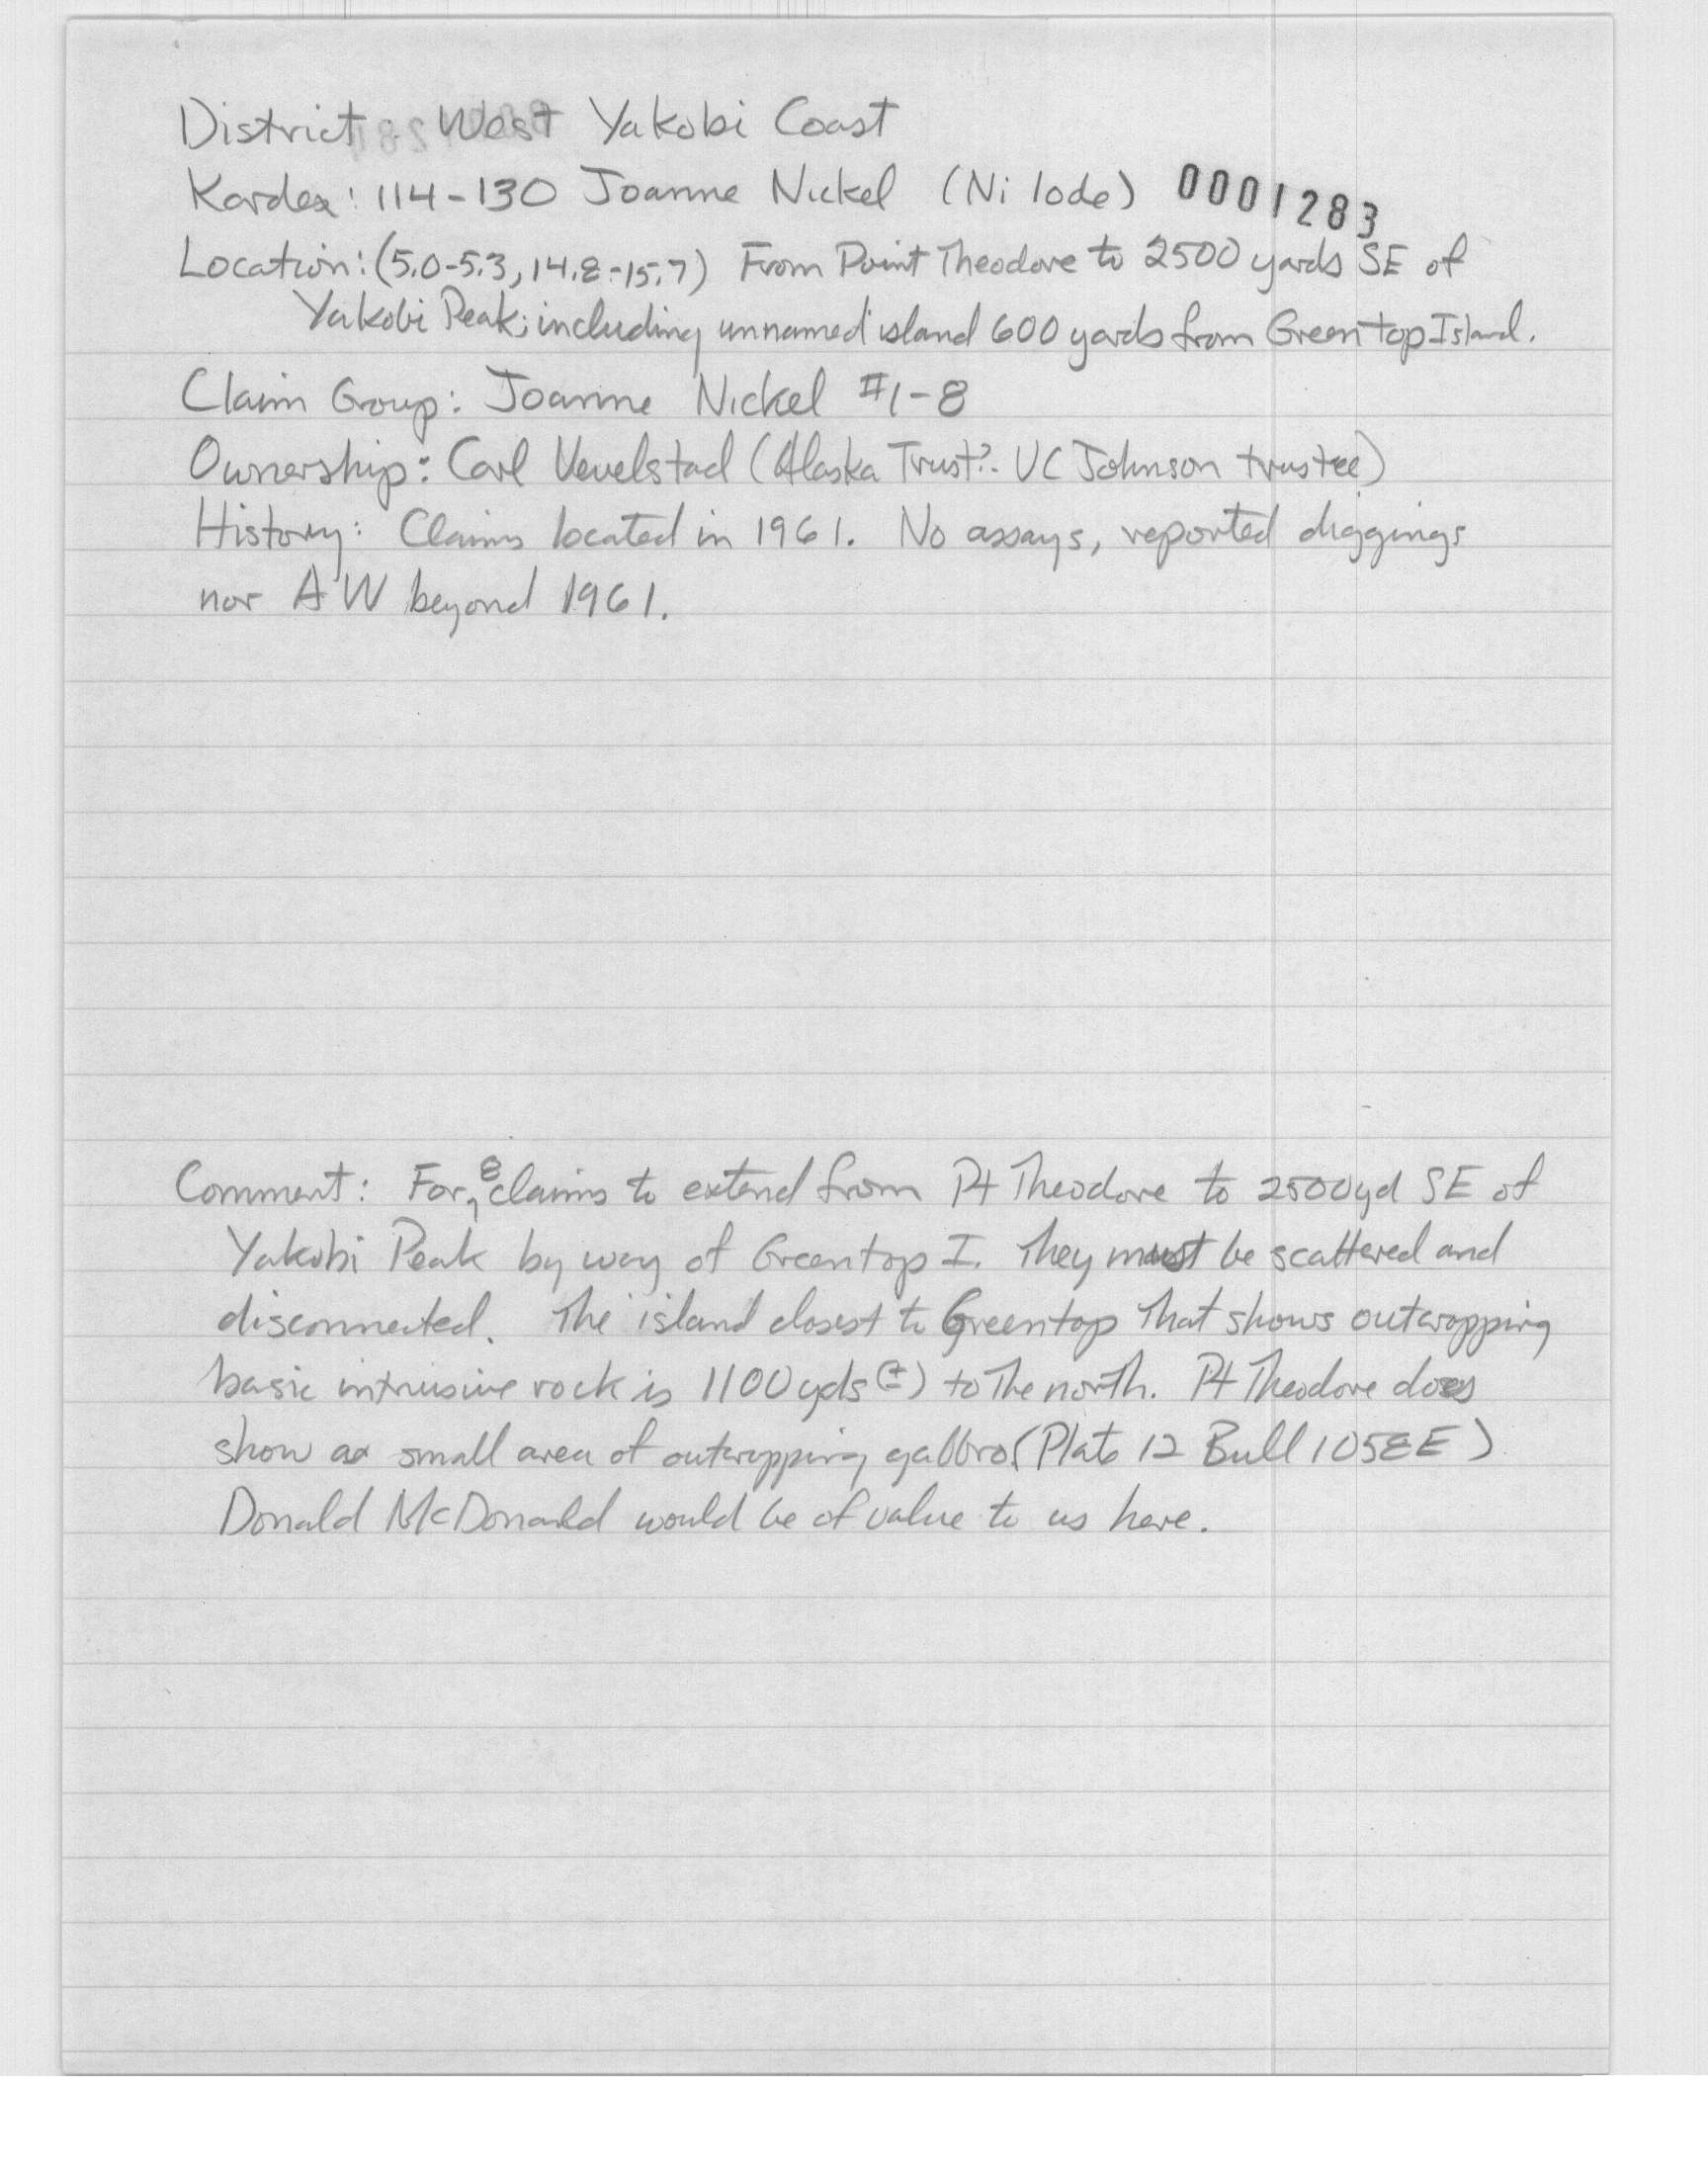 District: West Yakobi Coast
Kardex: 114-130 Joanne Nickel (Ni lode) 0001283
Location: (5.0-5.3, 14.8-15.7) From Point Theodore to 2500 yards SE of
Yakobi Peak; including unnamed island 600 yards from Greentop Island.
Claim Group: Joanne Nickel #1-8
Ownership: Carl Vevelstad (Alaska Trust? - VC Johnson trustee)
History: Claims located in 1961. No assays, reported diggings
nor AW beyond 1961.
Comment: For 8 claims to extend from Pt Theodore to 2500yd SE of
Yakobi Peak by way of Greentop I. They must be scattered and
disconnected. The island closest to Greentop that shows outcropping
basic intrusive rock is 1100 yds (±) to the north. Pt Theodore does
show a small area of outcropping gabbro (Plate 12 Bull 1058E)
Donald McDonald would be of value to us here.